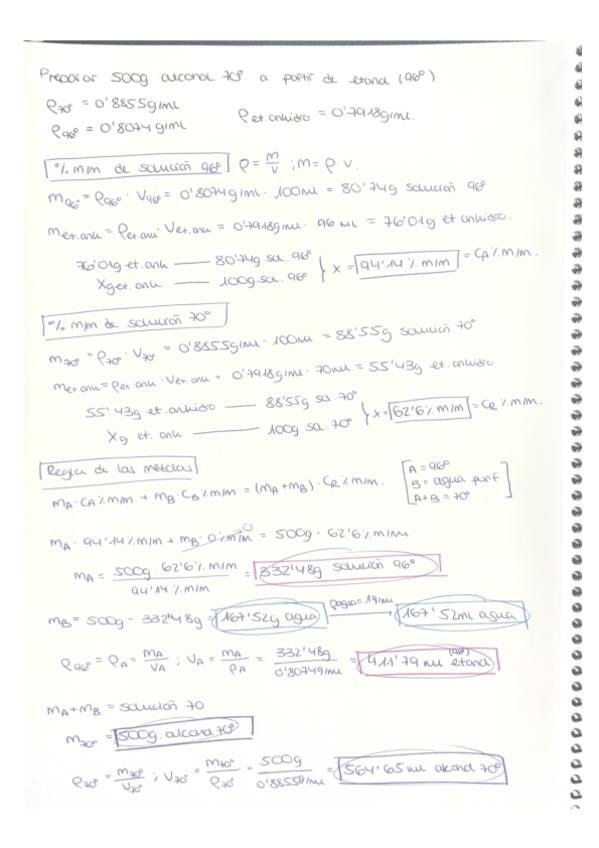 Preparar 500g alcohol 70º a partir de etanol (96º)
ρ70º = 0'8855g/mL
ρ96º = 0'8074 g/mL
ρet.anhidro = 0'7918g/mL.
% m/m de solución 96º ρ = m/V ; m = ρ · V.
m96º = ρ96º · V96º = 0'8074g/mL · 100mL = 80'74g solución 96º
met.anh = ρet.anh · Vet.anh = 0'7918g/mL · 96 mL = 76'01g et anhidro.
76'01g et.anh —— 80'74g sol. 96º
Xg et. anh —— 100g sol. 96º } x = 94'14 % m/m = CA % m/m.
% m/m de solución 70º
m70º = ρ70º · V70º = 0'8855g/mL · 100mL = 88'55g solución 70º
met anh = ρet anh · Vet.anh = 0'7918g/mL · 70mL = 55'43g et.anhidro.
55'43g et.anhidro —— 88'55g sol. 70º
Xg et. anh —— 100g sol. 70º } x = 62'6 % m/m = CR % m/m.
Regla de las mezclas
mA · CA % m/m + mB · CB % m/m = (mA + mB) · CR % m/m.
[A = 96º
B = agua purif
A+B = 70º]
mA · 94'14 % m/m + mB · 0% m/m 0 = 500g · 62'6 % m/m
mA = 500g · 62'6 % m/m / 94'14 % m/m = 332'48g solución 96º
mB = 500g - 332'48g = 167'52g agua ρagua = 1g/mL → 167'52mL agua
ρ96º = ρA = mA/VA ; VA = mA/ρA = 332'48g / 0'8074g/mL = 411'79 mL etanol (96º)
mA + mB = solución 70
m70º = 500g. alcohol 70º
ρ70º = m70º/V70º ; V70º = m70º/ρ70º = 500g / 0'8855g/mL = 564'65 mL alcohol 70º